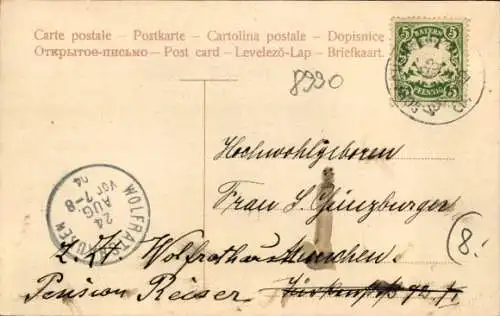 Carte postale – Postkarte – Cartolina postale – Dopisnice
Открытое-письмо – Post card – Levelező-Lap – Briefkaart.
BAYERN
5 5
PFENNIG
8990
Hochwohlgeboren
Frau S. Ginzburger
München.
z. Zt. Wolfratshausen
Pension Reiser
WOLFRATSHAUSEN
24
AUG
VOR 7-8
04
8.